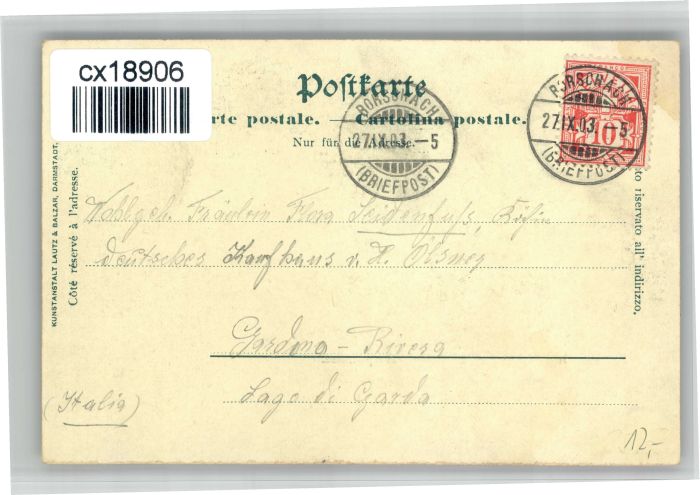 cx18906
Postkarte
RORSCHACH
27.IX.03.–5
(BRIEFPOST)
RORSCHACH
27.IX.03.–5
(BRIEFPOST)
10
rte postale. — Cartolina postale.
Nur für die Adresse.
KUNSTANSTALT LAUTZ & BALZAR, DARMSTADT,
Côté réservé à l'adresse.
to riservato all' indirizzo.
Wohlgeb. Fräulein Flora Seidenfuss,
deutsches Kaufhaus v. H. Oisney
Gardone - Rivera
Lago di Garda
(Italia)
12,-